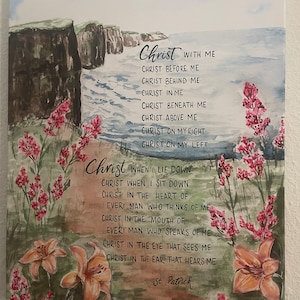 Christ WITH ME
CHRIST BEFORE ME
CHRIST BEHIND ME
CHRIST IN ME
CHRIST BENEATH ME
CHRIST ABOVE ME
CHRIST ON MY RIGHT
CHRIST ON MY LEFT
Christ WHEN I LIE DOWN
CHRIST WHEN I SIT DOWN
CHRIST IN THE HEART OF
EVERY MAN WHO THINKS OF ME
CHRIST IN THE MOUTH OF
EVERY MAN WHO SPEAKS OF ME
CHRIST IN THE EYE THAT SEES ME
CHRIST IN THE EAR THAT HEARS ME
St. Patrick